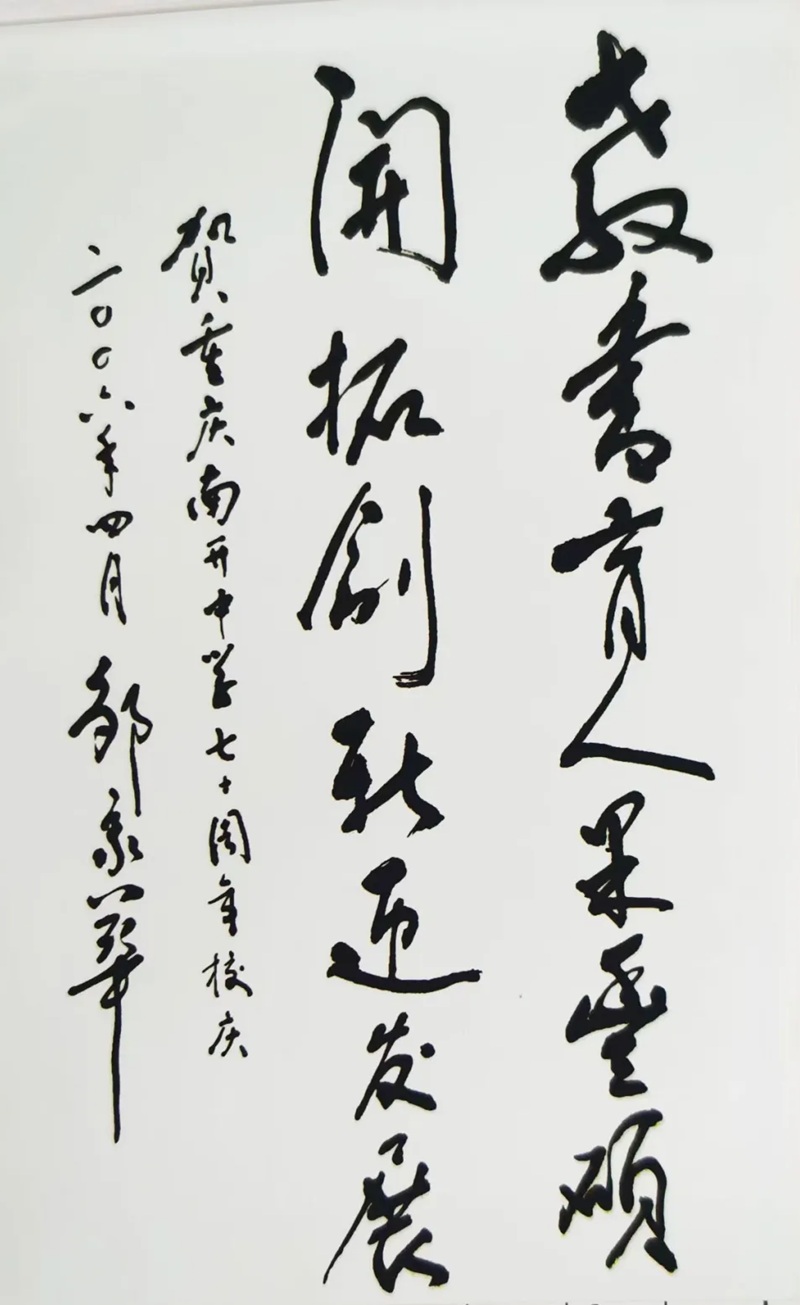 教書育人果豐碩
開拓創新迎发展
賀重庆南开中学七十周年校庆
二〇〇六年四月 邹家華